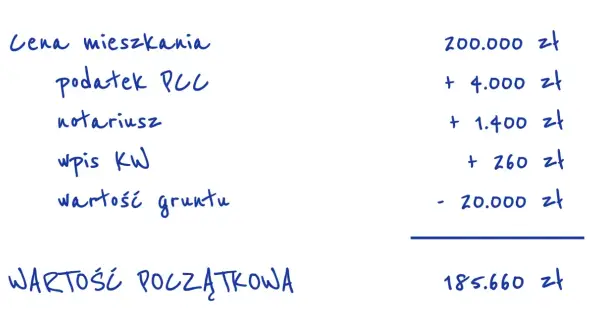 Cena mieszkania 200.000 zł
podatek PCC + 4.000 zł
notariusz + 1.400 zł
wpis KW + 260 zł
wartość gruntu - 20.000 zł
WARTOŚĆ POCZĄTKOWA 185.660 zł